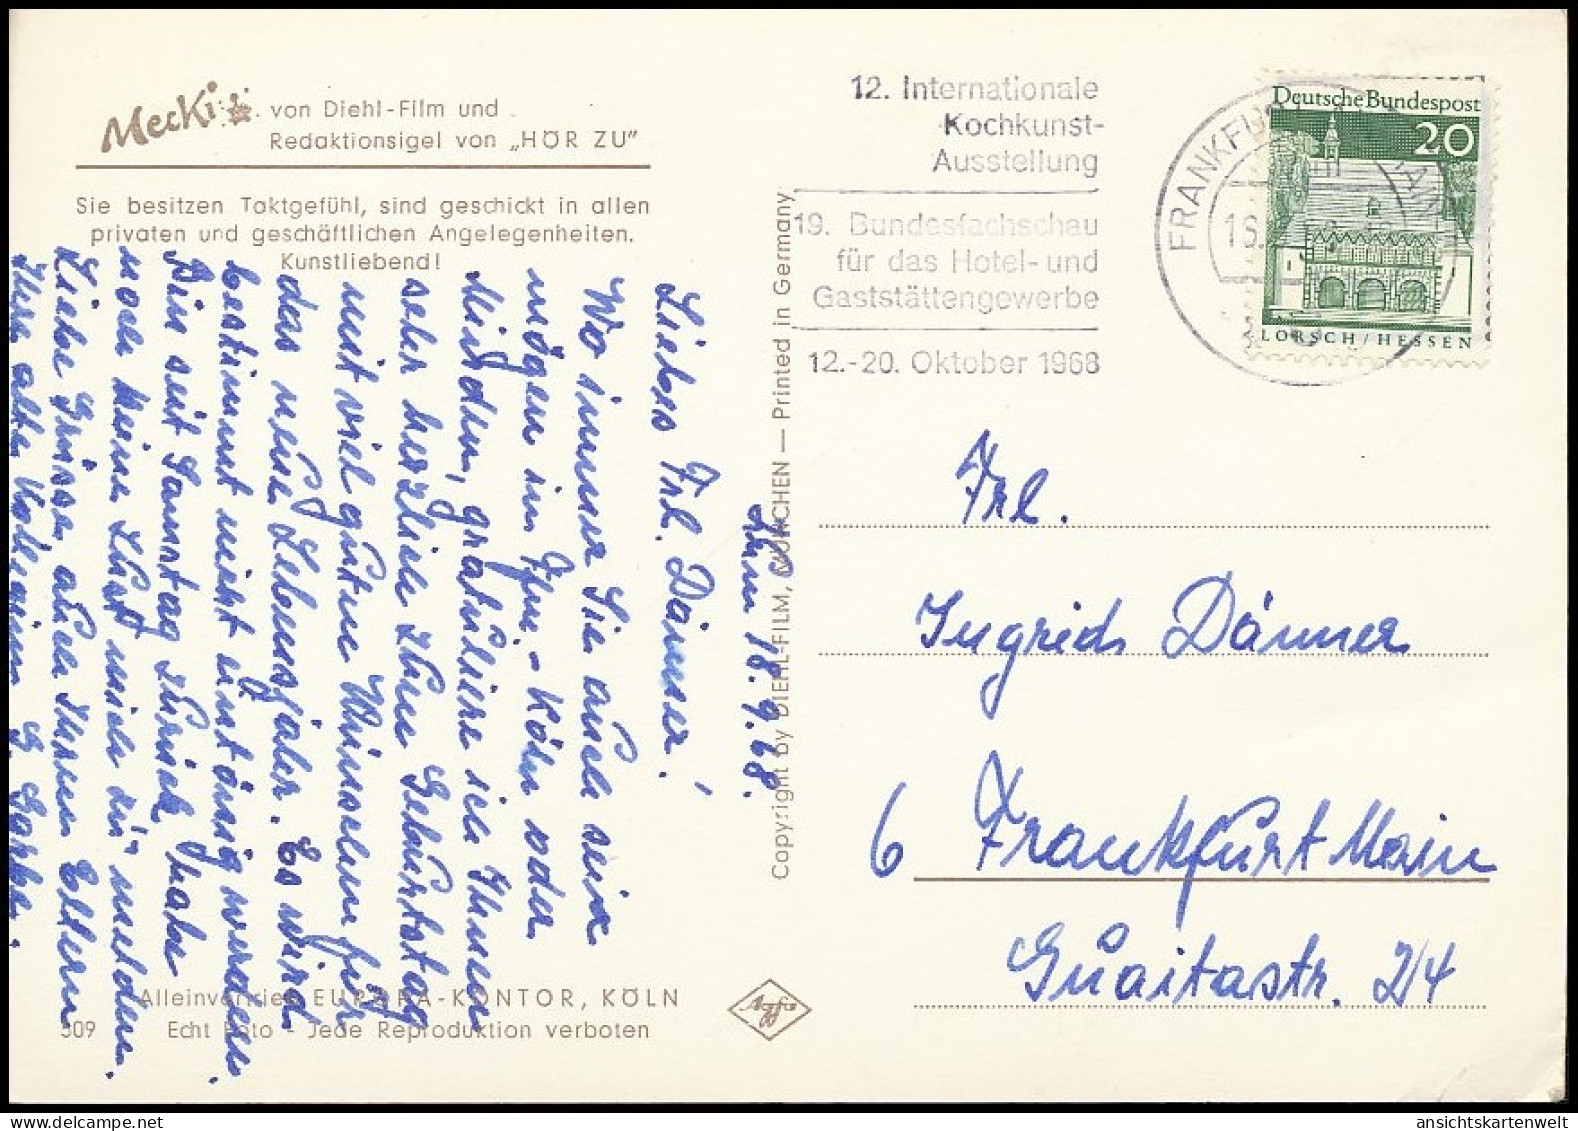 Mecki
von Diehl-Film und
Redaktionsigel von „HÖR ZU"
Sie besitzen Taktgefühl, sind geschickt in allen
privaten und geschäftlichen Angelegenheiten.
Kunstliebend!
18.9.68.
Liebes Frl. Dänner!
Wo immer Sie auch sein
mögen im Köln oder
Minden, gratuliere ich Ihnen
sehr herzlich zum Geburtstag
mit viel guten Wünschen für
das neue Lebensjahr. Es wird
bestimmt nicht eintönig werden.
Bin seit Samstag zurück, habe
noch keine Lust mich zu melden.
Liebe Grüsse, auch Ihren Eltern
Ihre alte Kollegin G.
Alleinvertrieb EUROPA-KONTOR, KÖLN
509 Echt Foto - Jede Reproduktion verboten
Copyright by DIEHL-FILM, MÜNCHEN — Printed in Germany
Agfa
12. Internationale
Kochkunst-
Ausstellung
19. Bundesfachschau
für das Hotel- und
Gaststättengewerbe
12.-20. Oktober 1968
FRANKFU
16.
Deutsche Bundespost
20
LORSCH/HESSEN
Frl.
Ingrid Dänner
6 Frankfurt Main
Guaitastr. 2/4
ansichtskartenwelt@ansichtskartenwelt.com